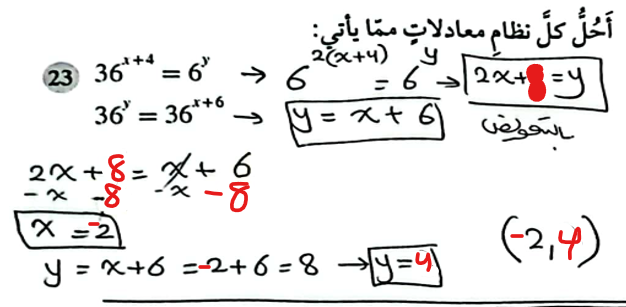 أَحُلُّ كلَّ نظامِ معادلاتٍ ممّا يأتي:
23 36^{x+4} = 6^y → 6^{2(x+4)} = 6^y → 2x+8=y
36^y = 36^{x+6} → y = x + 6 بالتعويض
2x + 8 = x + 6
- x - 8 - x - 8
x = -2
y = x+6 = -2+6 = 8 → y=4 (-2,4)